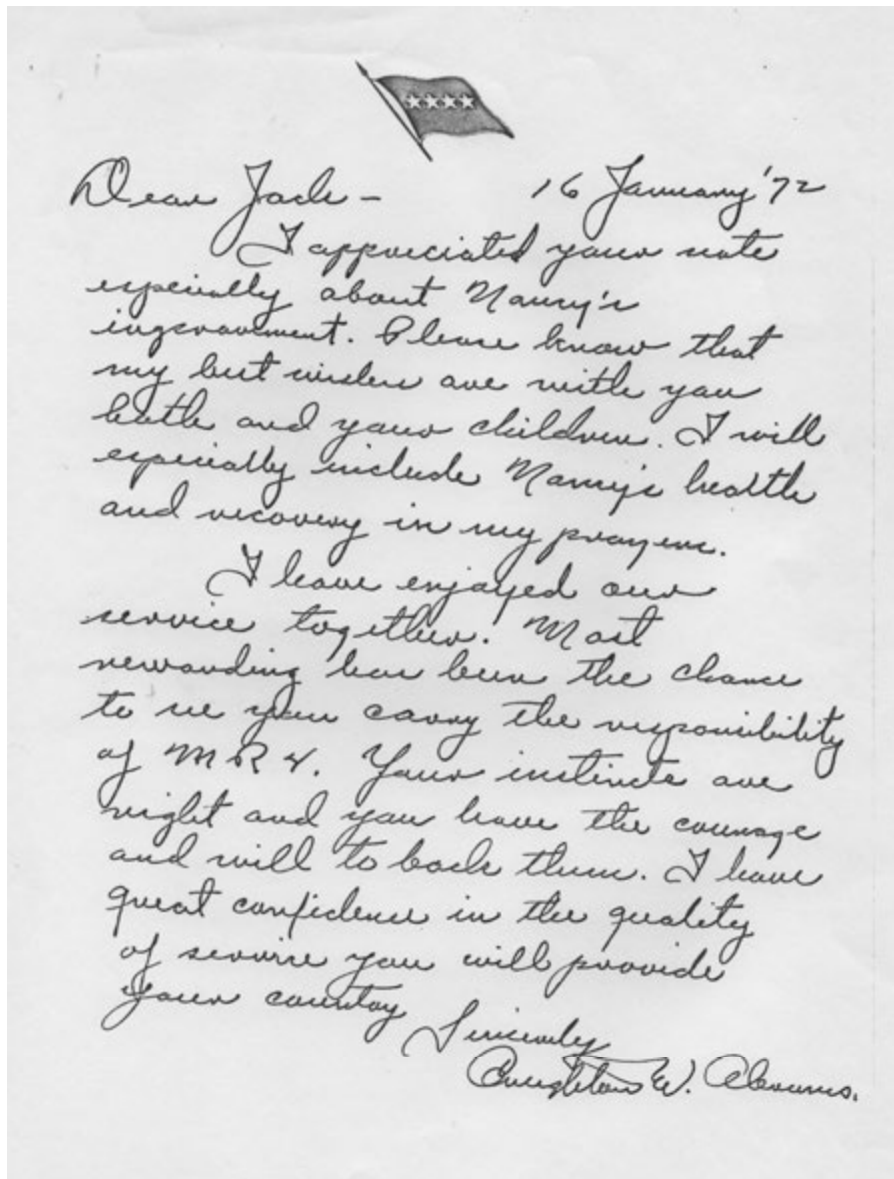 Dear Jack – 16 January '72
I appreciated your note
especially about Nancy's
improvement. Please know that
my best wishes are with you
both and your children. I will
especially include Nancy's health
and recovery in my prayers.
I have enjoyed our
service together. Most
rewarding has been the chance
to see you carry the responsibility
of MR 4. Your instincts are
right and you have the courage
and will to back them. I have
great confidence in the quality
of service you will provide
your country
Sincerely
Creighton W. Abrams.